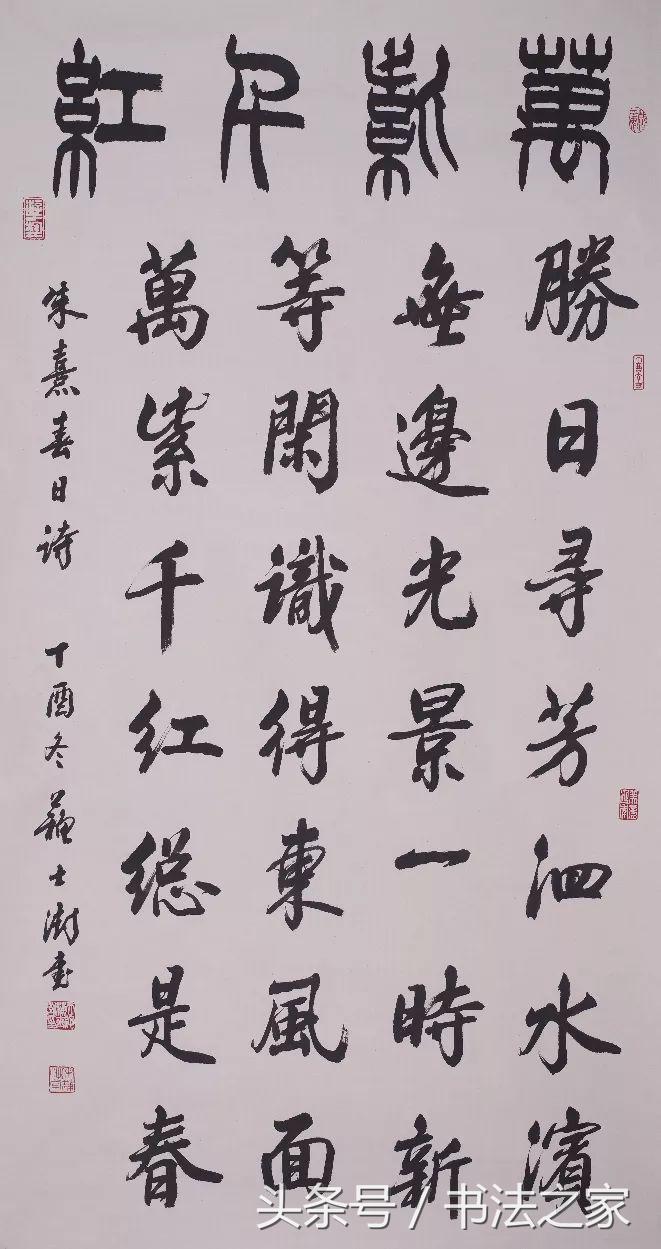 萬紫千紅
勝日尋芳泗水濱
無邊光景一時新
等閑識得東風面
萬紫千红總是春
朱熹春日诗 丁酉冬蘇士澍书
头条号 / 书法之家